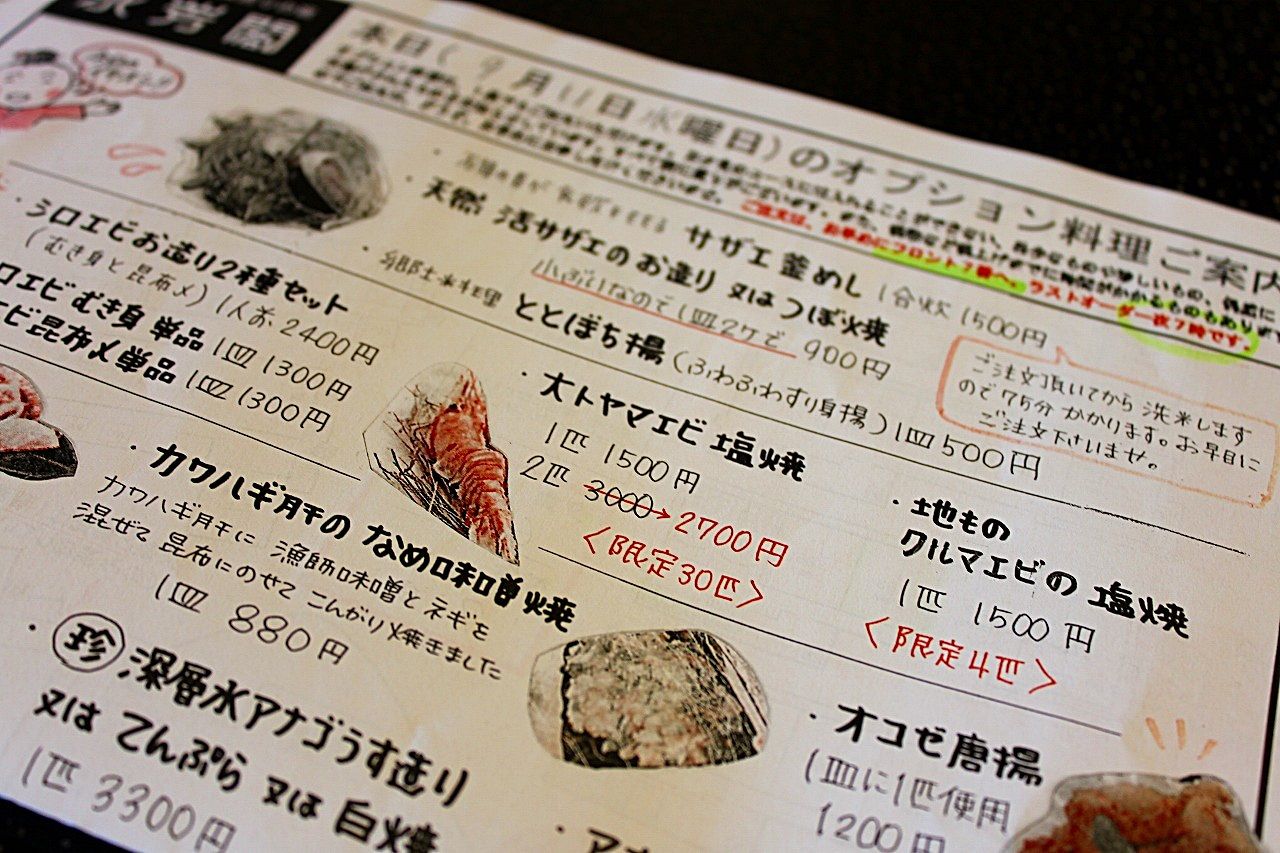 本日(9月11日水曜日)のオプション料理ご案内
ご注文は、お早めにフロント7番へ。ラストオーダー夜7時です。
サザエ釜めし 1合炊 1500円
・天然 活サザエのお造り 又はつぼ焼
小ぶりなので1皿2ケで 900円
ご注文頂いてから洗米します
ので75分かかります。お早目に
ご注文下さいませ。
・郷土料理 ととぼち揚(ふわふわすり身揚)1皿500円
・シロエビお造り2種セット
(むき身と昆布〆)1人前2400円
ロエビむき身 単品 1皿1300円
エビ昆布〆単品 1皿1300円
・大トヤマエビ 塩焼
1匹 1500円
2匹 3000→2700円
〈限定30匹〉
・地もの
クルマエビの 塩焼
1匹 1500円
〈限定4匹〉
・カワハギ肝の なめ味噌焼
カワハギ肝に 漁師味噌とネギを
混ぜて 昆布にのせて こんがり焼きました
1皿 880円
・珍 深層水アナゴうす造り
又は てんぷら 又は 白焼
1匹 3300円
・オコゼ唐揚
(皿に1匹使用
1200円